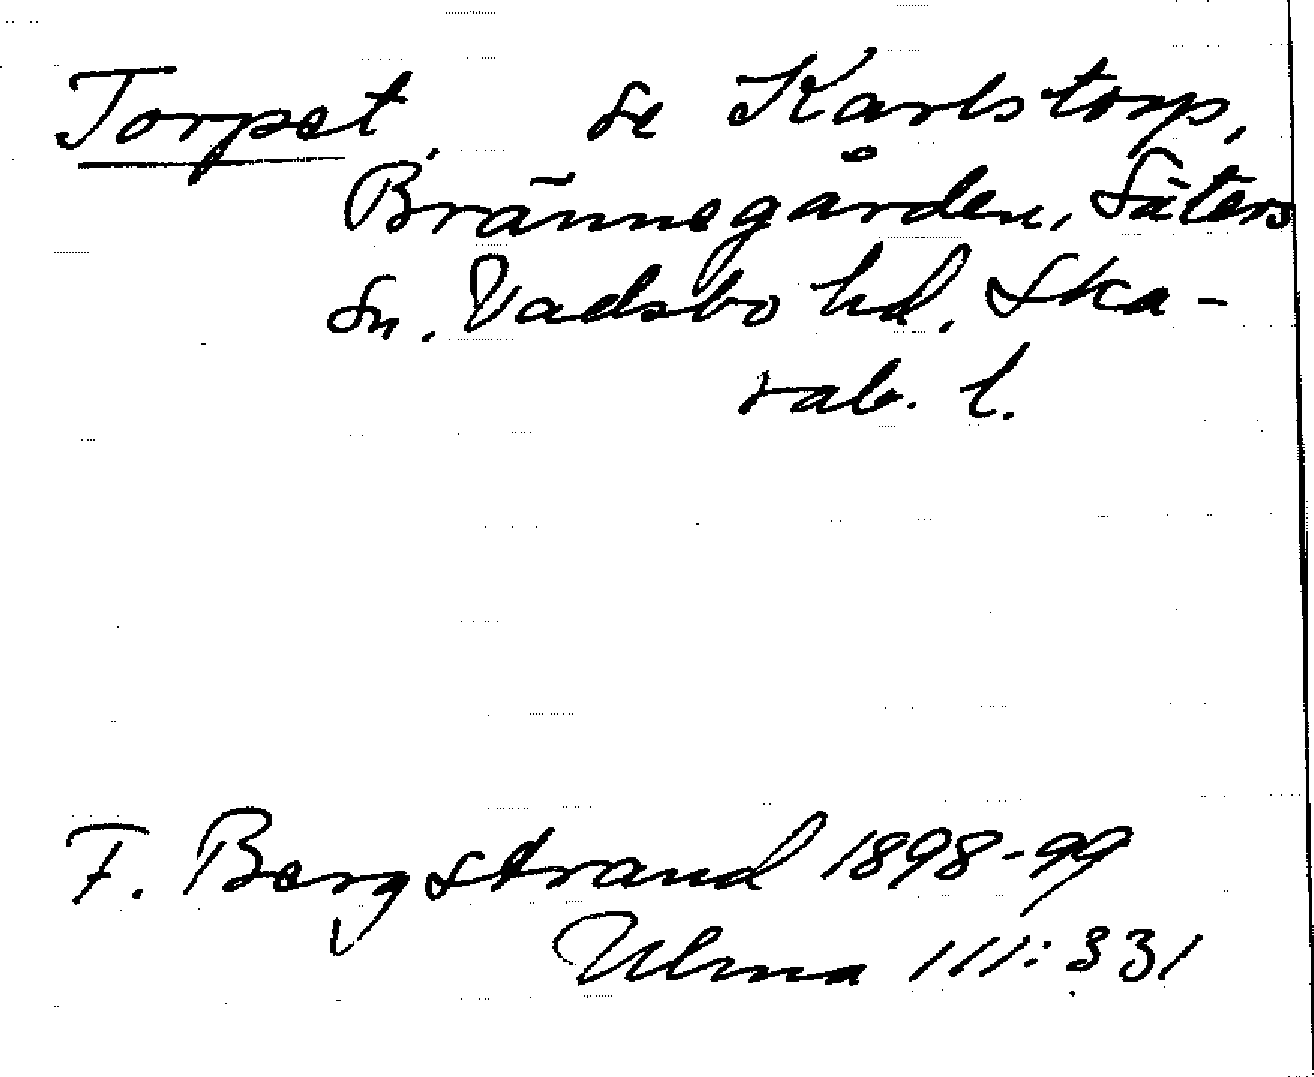 Torpet, se Karlstorp,
Brännegården, Säters
sn. Vadsbo hd. Ska-
rab. l.
F. Bergstrand 1898-99
Ulma 111:331